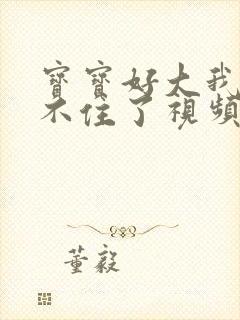 寶寶好大我
不住了視頻
董毅